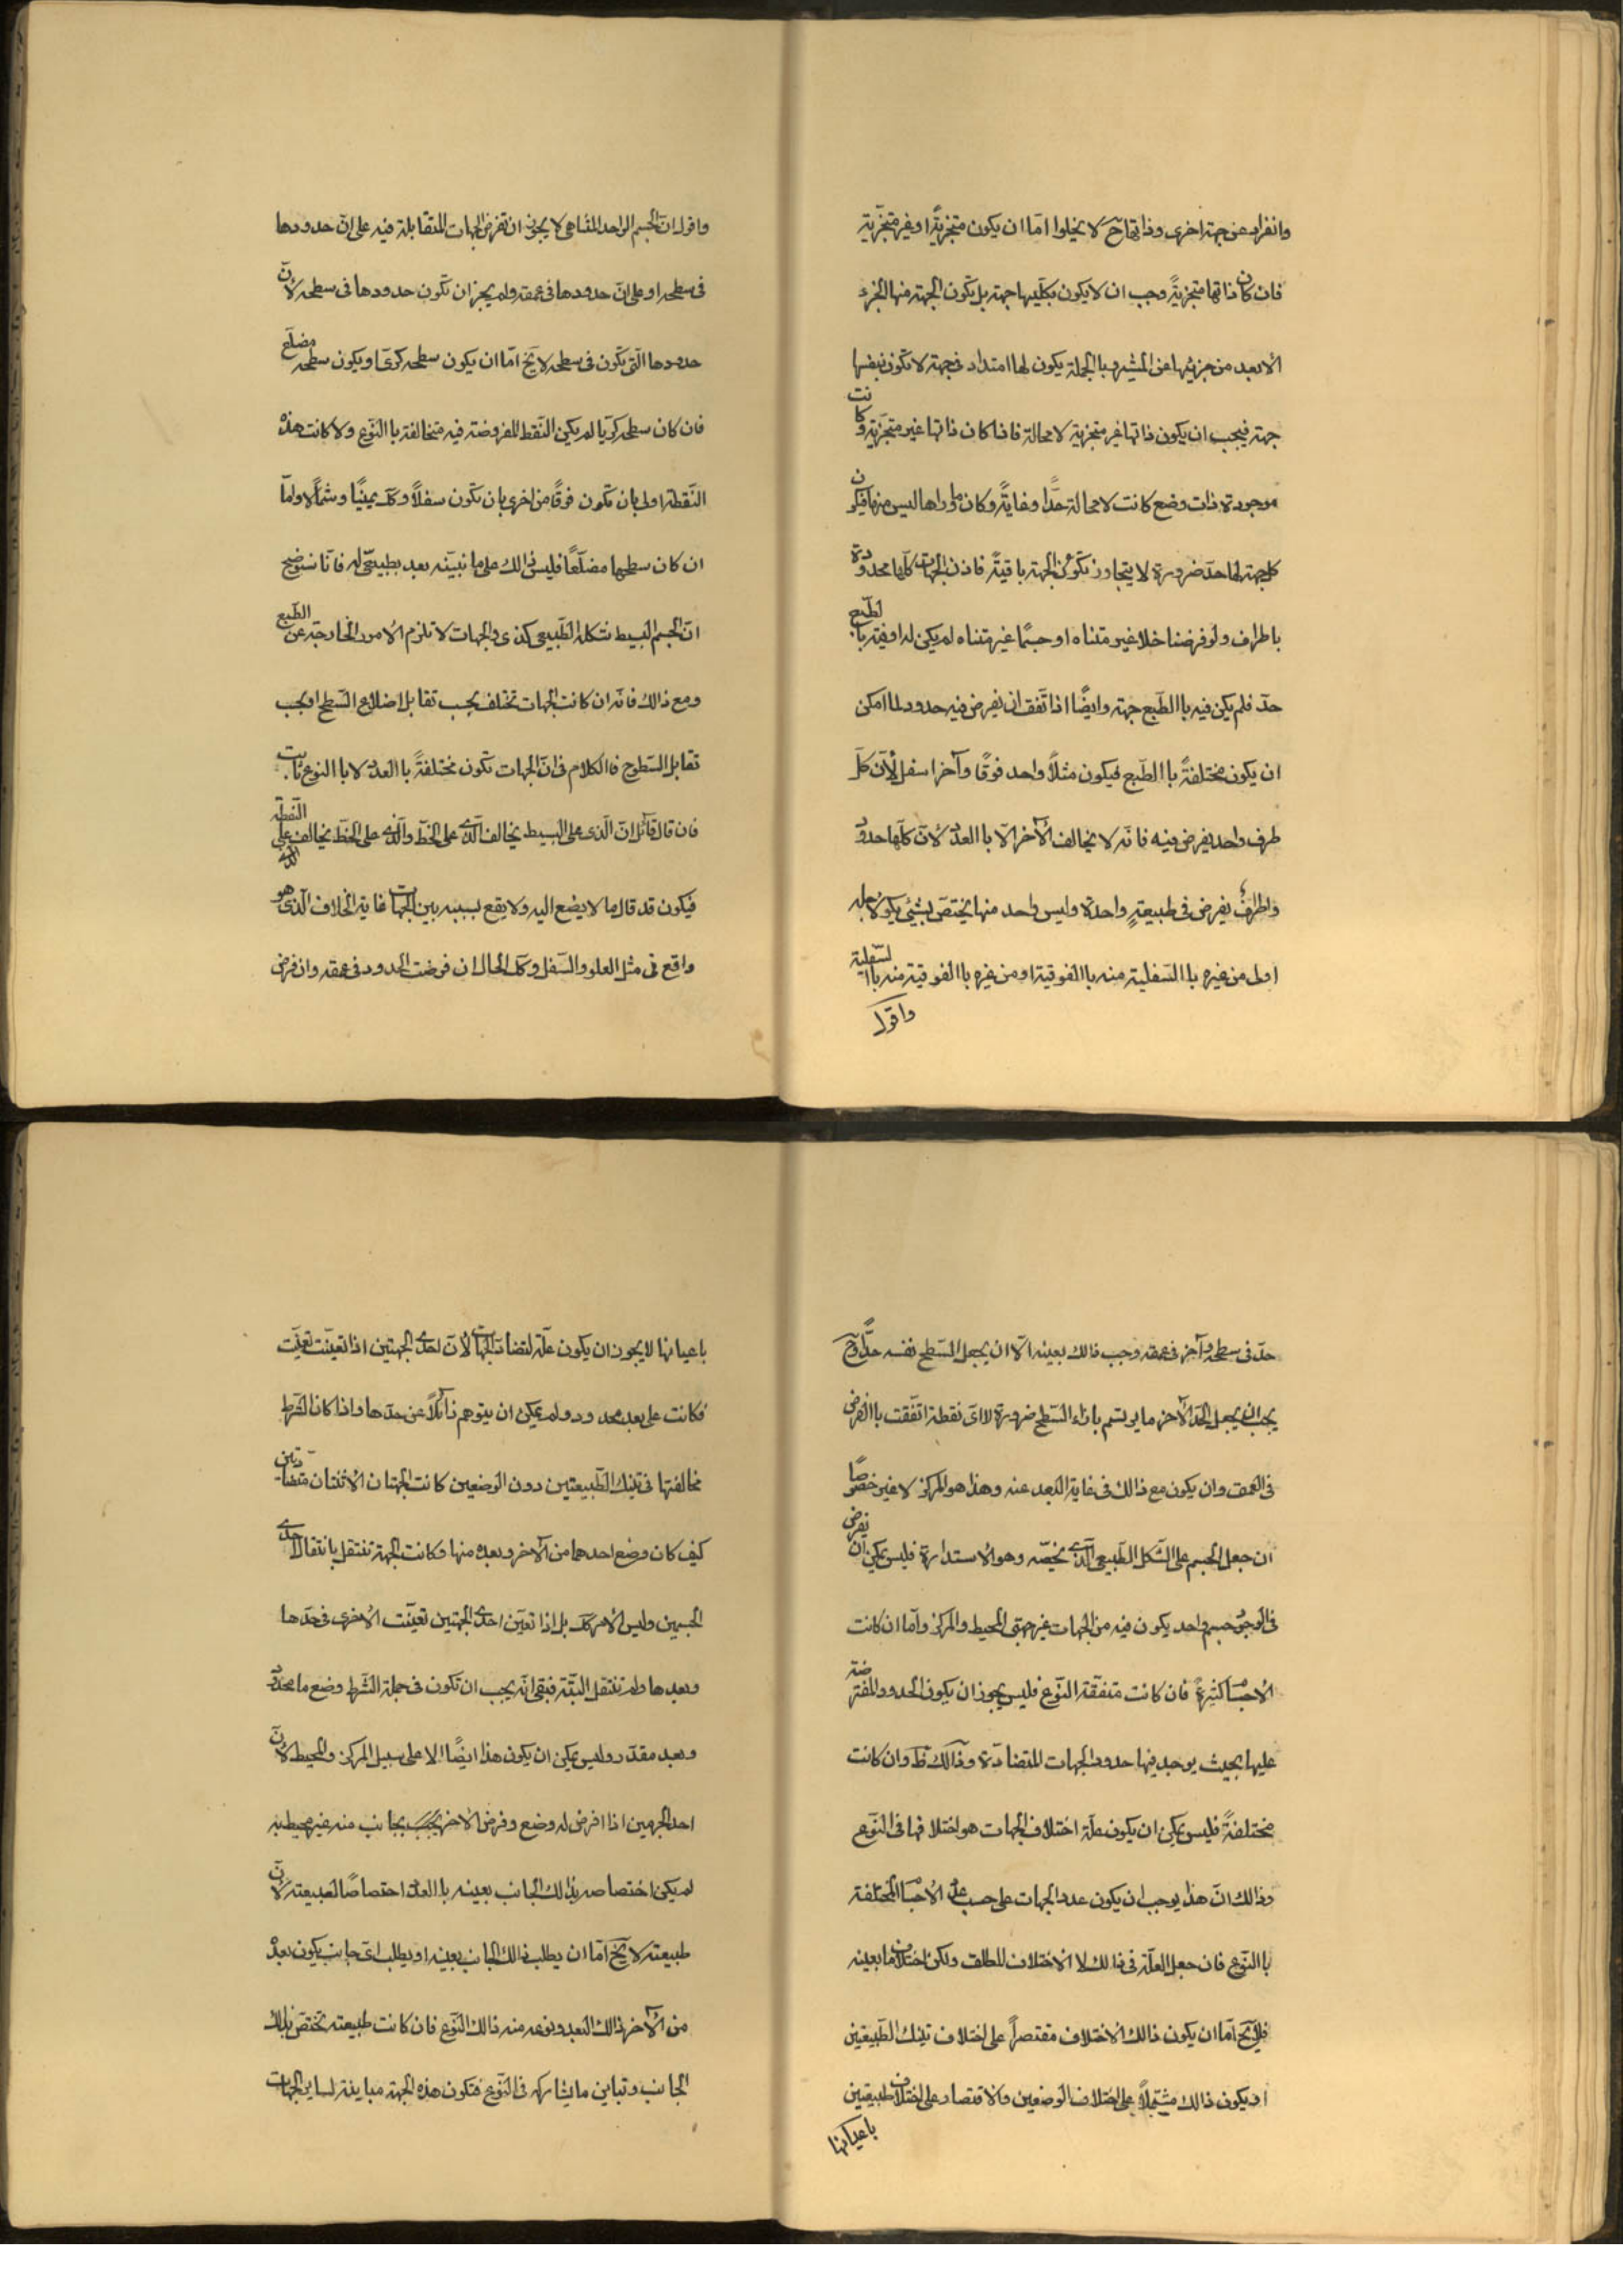 وانفراد عن جهة اخرى وذاتها ح لا يخلوا امّا ان يكون متجزيةً او غير متجزّية
فان كان ذاتها متجزيةً وجب ان لا يكون بكلّيها جهة بل يكون الجهة منها الجزء
الابعد من جزئيها عن المشير وبا الجملة يكون لها امتداد فى جهة لا تكون بنفسها
جهة فيجب ان يكون ذاتها غير متجزية لا محالة فاذا كان ذاتها غير متجزّية وكانت
موجودة ذات وضع كانت لا محالة حدًّا وغايةً وكان ماوراها ليس منها فيكون
كل جهة لها حدّ ضرورة لا يتجاوز تكون الجهة باقيةً فاذن الجهات كلّها محدودة
باطراف ولو فرضنا خلا غير متناه او جسمًا غير متناه لم يكن له او فيه با الطبع
حدّ فلم يكن فيه با الطّبع جهة وايضًا اذا تّفق ان يفرض فيه حدود لما امكن
ان يكون مختلفةً با الطّبع فيكون مثلًا واحد فوقًا وآخرا سفل لأنّ كلّ
طرف واحد يفرض فيه فانّه لا يخالف الأخر الّا با العدد لأنّ كلّها حدود
واطراف يفرض فى طبيعةٍ واحدة وليس واحد منها يختصّ بشئي يكون لاجله
اولى من غيره با السّفلية منه با الفوقية او من غيره با الفوقية منه با السّفلية
واقول
واقول انّ الجسم الواحد المتناهى لا يجوز ان تفرض الجهات المتقابلة فيه على انّ حدودها
فى سطحه او على انّ حدودها فى عمقه ولم يجز ان تكون حدودها فى سطحه لأنّ
حدودها الّتى تكون فى سطحه لا يخ امّا ان يكون سطحه كرىّ او يكون سطحه مضلّع
فان كان سطحه كريّا لم يكن النّقط المفروضة فيه متخالفة با النّوع ولا كانت هذه
النّقطة اولى بان تكون فوقًا من اخرى بان تكون سفلًا وكك يمينًا وشمالًا وامّا
ان كان سطحها مضلّعًا فليس ذالك على ما نبيّنه بعد بطبيعىّ له فانّا سنوضح
انّ الجسم البسيط شكله الطّبيعى كذى والجهات لا تلزم الامور الخارجة عن الطّبع
ومع ذالك فانّه ان كانت الجهات تختلف بحسب تقابل اضلاع السّطح او بحسب
تقابل السّطوح فا الكلام فى انّ الجهات تكون مختلفةً با العدد لا با النوع ثابت
فان قال قائل انّ الّذى على البسيط يخالف الّذى على الخطّ والّذى على الخطّ يخالف الّذى على النّقطة
فيكون قد قال ما لا يضع اليه ولا يقع بسببه بين الجهات غاية الخلاف الّذى هو
واقع فى مثل العلو والسّفل وكك الحال ان فرضت الحدود فى عمقه وان فرض
حدّ فى سطحه وآخر فى عمقه وجب ذالك بعينه الّا ان يجعل السّطح نفسه حدًّا وح
يجب ان يجعل الحدّ الآخر ما يرتسم بازاء السّطح ضرورة لا اىّ نقطة اتّفقت با الفرض
فى العمق وان يكون مع ذالك فى غاية البعد عنه وهذا هو المركز لا غير خصوصًا
ان جعل الجسم على الشّكل الطّبيعى الّذى يخصّه وهو الاستدارة فليس يمكن ان يفرض
فى الوجود جسم واحد يكون فيه من الجهات غير جهتى المحيط والمركز وامّا ان كانت
الاجسام كثيرةً فان كانت متفقة النّوع فليس يجوز ان يكون الحدود المفترضة
عليها بحيث يوجد فيها حدود الجهات المتضادّة وذالك ظ وان كانت
مختلفةً فليس يمكن ان يكون علّة اختلاف الجهات هو اختلافها فى النّوع
وذالك انّ هذا يوجب ان يكون عدد الجهات على حسب عدد الاجسام المختلفة
با النّوع فان جعل العلّة فى ذالك لا الاختلاف المطلق ولكن اختلاف ما بعينه
فلا يخ امّا ان يكون ذالك الاختلاف مقتصرًا على اختلاف تينك الطّبيعتين
او يكون ذالك مشتملًا على اختلاف الوضعين والاقتصار على اختلاف طبيعتين
باعيانها
باعيانها لا يجوز ان يكون علّة لتضادّ الجهات لأنّ احدى الجهتين اذا تعيّنت تعيّنت
فكانت على بعد محدود ولم يمكن ان يتوهم زائلًا عن حدّها واذا كان الشرط
مخالفتها فى تينك الطّبيعتين دون الوضعين كانت الجهتان الاثنتان متضادّتين
كيف كان وضع احدهما من الآخر وبعده منها وكانت الجهة تنتقل بانتقال احدى
الجسمين وليس الأمر كك بل اذا تعيّن احدى الجهتين تعيّنت الاخرى فى حدّها
وبعدها ولم تنتقل البتّة فبقى انّه يجب ان تكون فى جملة الشّرط وضع ما محدود
وبعد مقدّر وليس يمكن ان يكون هذا ايضًا الا على سبيل المركز والمحيط لأنّ
احد الجرمين اذا افرض له وضع وفرض الاخر بجانب منه غير محيط به
لم يكن اختصاصه بذالك الجانب بعينه با العدد اختصاصًا لطبيعته لأنّ
طبيعته لا يخ امّا ان يطلب ذالك الجانب بعينه او يطلب اىّ جانب يكون بعده
من الآخر ذالك البعد ونوعه منه ذالك النّوع فان كانت طبيعته تختصّ بذالك
الجانب وتباين ما يشاركه فى النّوع فتكون هذه الجهة مباينة لساير الجهات